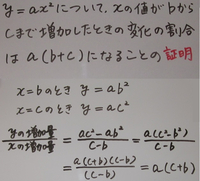 y=ax²について、xの値がbから
cまで増加したときの変化の割合
はa(b+c)になることの証明
x=bのとき y=ab²
x=cのとき y=ac²
yの増加量/xの増加量 = (ac²-ab²)/(c-b) = a(c²-b²)/(c-b)
= a(c+b)(c-b)/(c-b) = a(c+b)